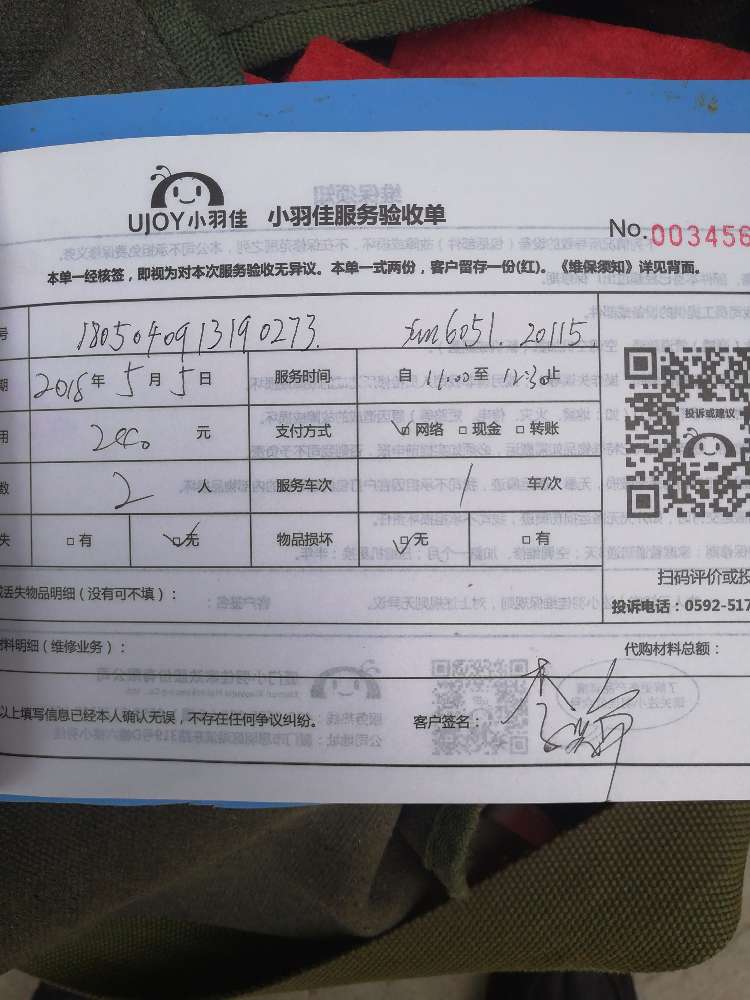 UJOY小羽佳 小羽佳服务验收单
No.003456
本单一经核签，即视为对本次服务验收无异议。本单一式两份，客户留存一份(红)。《维保须知》详见背面。
号 1805040913190273. 6051. 20115
期 2018年5月5日 服务时间 自 11:00至 12:30止
用 元 支付方式 网络 现金 转账
投诉或建议
数 2 人 服务车次 1 车/次
失 有 无 物品损坏 无 有
扫码评价或投
丢失物品明细（没有可不填）：
投诉电话：0592-517
料明细（维修业务）： 代购材料总额：
以上填写信息已经本人确认无误，不存在任何争议纠纷。 客户签名：